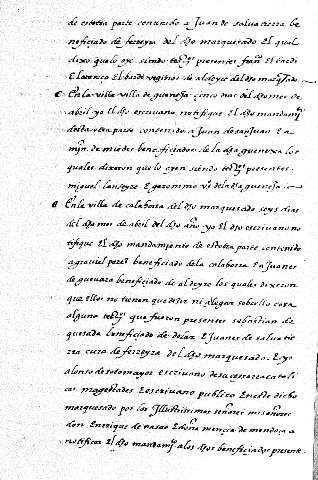 de esta otra parte contenido a Juan de salvatierra be
neficiado de ferreyra del dho marquesado El qual
dixo que lo oye siendo tsº presentes
Elarenco El bardi veginos de aldeyre del dho marqsado
En la villa de gueneja cinco dias del dho mes de
abril yo El dho escrivano notifique El dho mandamiº
desta otra parte contenido a Juan de san Juan E a
mjn de mieles beneficiados de la dha guenexa los
quales dixeron que lo oyen siendo tsº presentes
miguel E garonimo vº de la dha gueneja
En la villa de calahorra del dho marquesado seys dias
del dho mes de abril del dho año yo El dho escrivano no
tifique El dho mandamiento de esta otra parte contenido
a graviel perez beneficiado de la calahorra E a Juanes
de guevara beneficiado de aldeyre los quales dixeron
que Ellos no tienen que desir ni alegar sobre ello cosa
alguna tsº que fueron presentes sebastian de
quesada beneficiado de dolar E Juanes de salvatie
rra cura de ferreyra del dho marquesado. E yo
alonso de sotomayor escrivano de su cesarea catoli
cas magestades E escrivano publico En este dicho
marquesado por los Illustrisimos señores mi señores
don Enrrique de nasao E doña mencia de mendoça a
notificar El dho mandamº a los dhos beneficiados presente